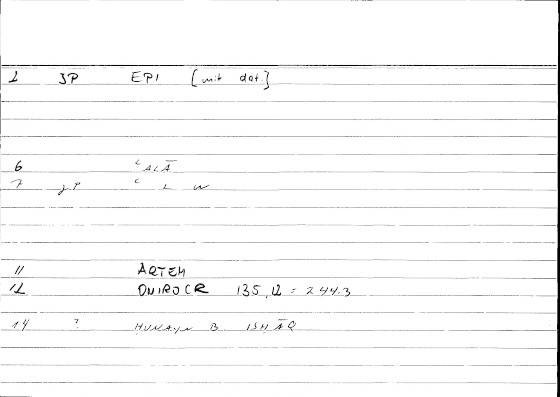 2 JP EPI [mit dat.]
6 ʿALĀ
7 JP ʿ L W
11 ARTEM
12 ONIROCR 135,12 = 244.3
14 ? HUNAYN B. ISHĀQ